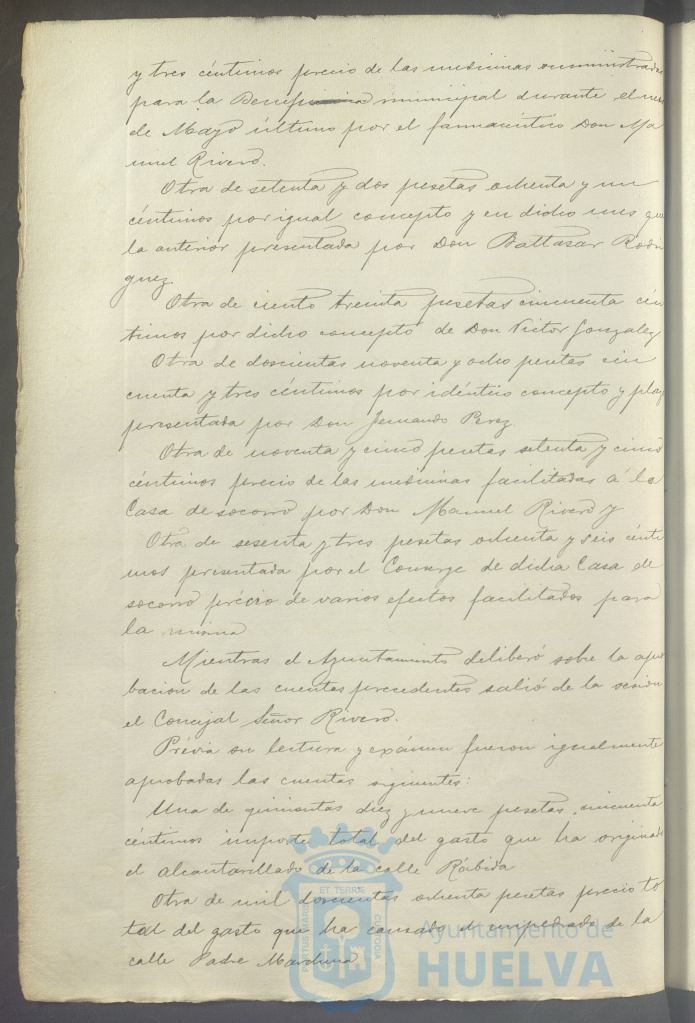 y tres céntimos precio de las medicinas suministradas
para la Beneficencia municipal durante el mes
de Mayo último por el farmacéutico Don Ma
nuel Rivero.
Otra de setenta y dos pesetas ochenta y un
céntimos por igual concepto y en dicho mes que
la anterior presentada por Don Baltasar Rodri
guez.
Otra de ciento treinta pesetas cincuenta cén
timos por dicho concepto de Don Victor Gonzalez
Otra de doscientas noventa y ocho pesetas cin
cuenta y tres céntimos por idéntico concepto y
presentada por Don Fernando Perez.
Otra de noventa y cinco pesetas setenta y cinco
céntimos precio de las medicinas facilitadas á la
Casa de socorro por Don Manuel Rivero y
Otra de sesenta y tres pesetas ochenta y seis cénti
mos presentada por el Conserge de dicha Casa de
socorro précio de varios efectos facilitados para
la misma
Mientras el Ayuntamiento deliberó sobre la apro
bacion de las cuentas precedentes salió de la sesion
el Concejal Señor Rivero.
Prévia su lectura y exámen fueron igualmente
aprobadas las cuentas siguientes:
Una de quinientas diez y nueve pesetas cincuenta
céntimos importe total del gasto que ha originado
el alcantarillado de la calle Rábida
Otra de mil doscientas ochenta pesetas precio to
tal del gasto que ha causado el empedrado de la
calle Padre Marchena
PORTUS MARIS ET TERRAE CUSTODIA
Ayuntamiento de
HUELVA